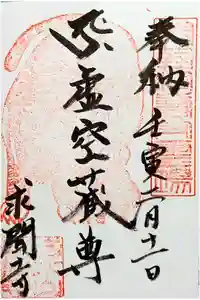 奉納 壬寅二月十一日
虚空蔵尊
求聞寺